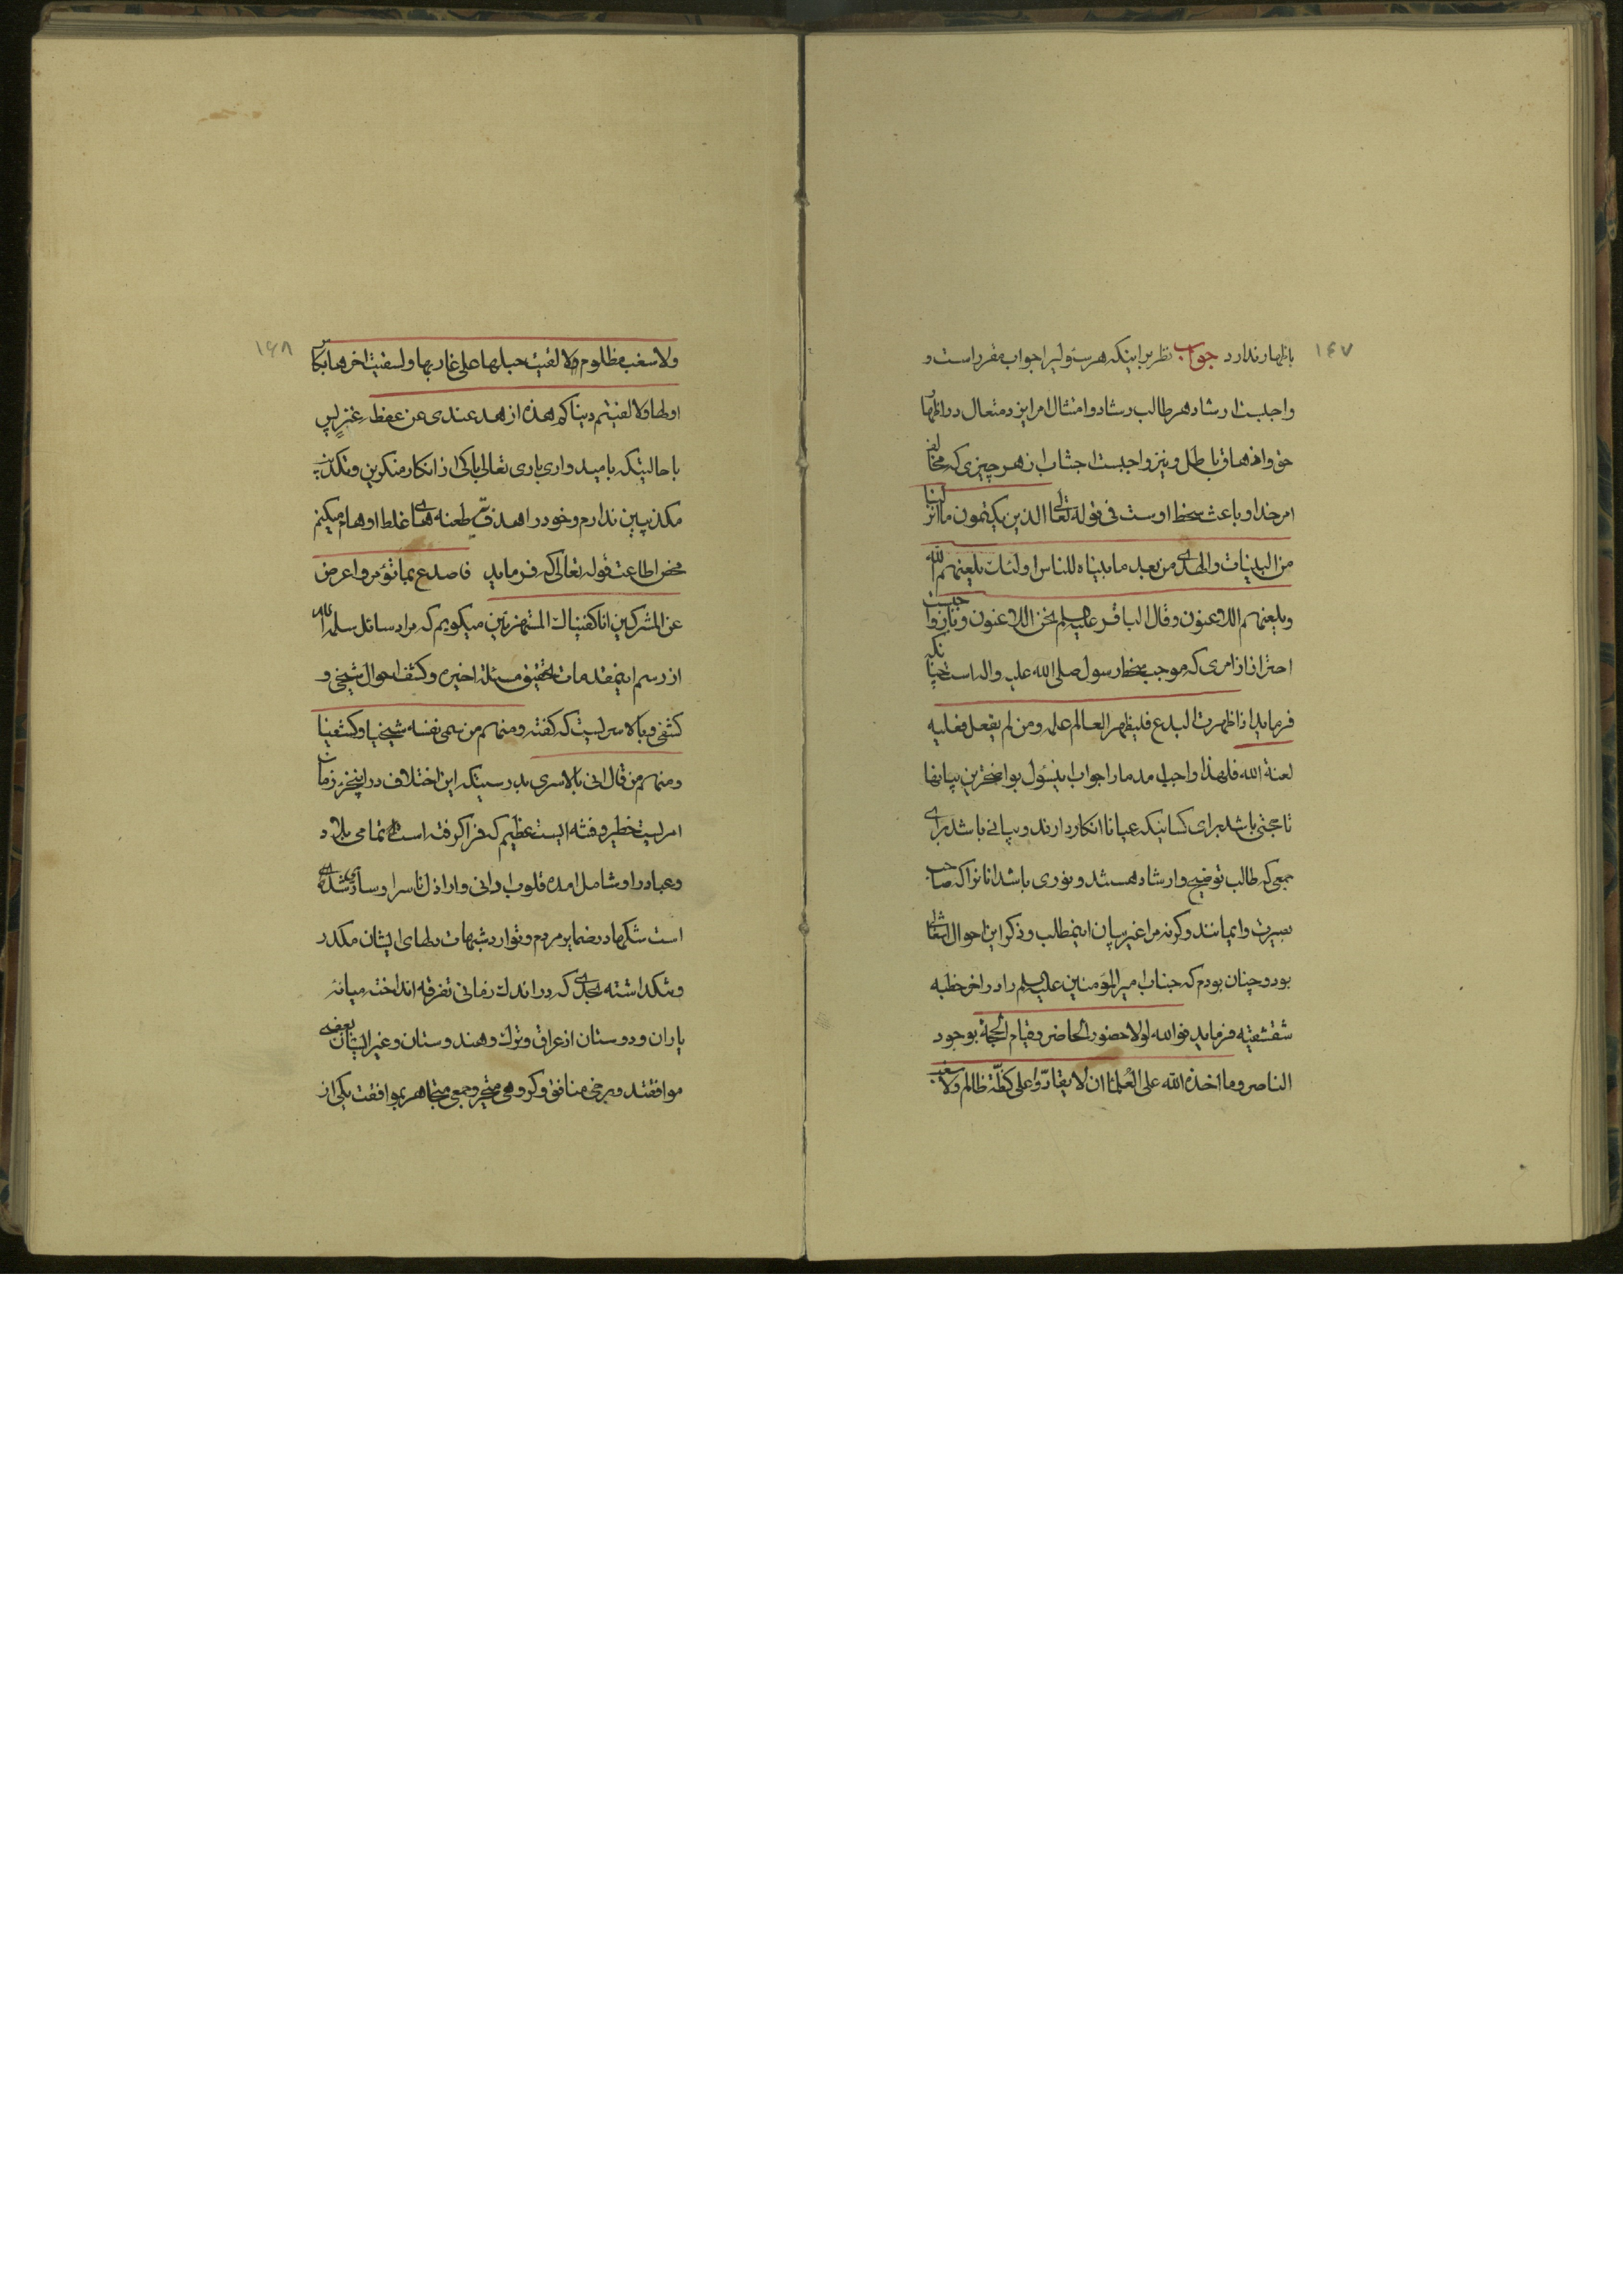 ۱۴۷
باظهار ندارد جواب نظر براینکه هر سئولیرا جواب مقرر است و
واجبست ارشاد هر طالب رشاد و امتثال امر ایزد متعال در اظهار
حق و اذهاق باطل و نیز واجبست اجتناب از هر چیزی که مخالف
امر خدا و باعث سخط اوست فی قوله تعالی الذین یکتمون ما انزلنا
من البینات والهدی من بعد ما بیناه للناس اولئک یلعنهم الله
ویلعنهم اللاعنون وقال الباقر علیه السلم نحن اللاعنون و نیز واجب
احتراز از امری که موجب سخط رسول صلی الله علیه واله است چنانکه
فرماید اذا ظهرت البدع فلیظهر العالم علمه ومن لم یفعل فعلیه
لعنة الله فلهذا واجب امد مارا جواب اینسؤل بواضحترین بیانها
تا حجتی باشد برای کسانیکه عیانا انکار دارند و بیانی باشد برای
جمعی که طالب توضیح وارشاد هستند و نوری باشد انانرا که صاحب
بصیرت وایمانند وکرنه مرا غیر بیان اینمطلب و ذکر این احوال اشغالی
بود و چنان بودم که جناب امیر المؤمنین علیه السلم را در اخر خطبه
شقشقیه فرماید فوالله لولا حضور الحاضر وقیام الحجة بوجود
الناصر وما اخذه الله علی العلماء ان لا یقارّوا علی کظّة ظالم ولا سغب
۱۴۸
ولا سغب مظلوم لالقیت حبلها علی غاربها ولسقیت اخرها بکاس
اولها ولالفیتم دنیاکم هذه ازهد عندی من عفطة عنز پس
با حالیتکه بامیدواری باری تعالی باکی از انکار منکرین و تکذیب
مکذبین ندارم و خود را هدف طعنه های غلط اوهام میکنم
محض اطاعت قوله تعالی که فرماید فاصدع بما تؤمر واعرض
عن المشرکین انا کفیناک المستهزئین میکویم که مراد سائل سلمه الله
از رسم اینمقدمات تحقیق مسئله اخیره و کشف احوال شیخی و
کشفی و بالاسریست که کفته ومنهم من سمی نفسه شیخیا وکشفیا
ومنهم من قال انی بالاسری بدرستیکه این اختلاف در این جزء زمان
امریست خطیر و فتنه ایست عظیم که فرا کرفته است تمامی بلاد
وعباد را و شامل امده قلوب ادانی و اراذل ناس را و ساری شده
است شکها در ضمایر مردم و توارد شبهات دلهای ایشان مکدر
و تنکداشته بحدی که در اندک زمانی تفرقه انداخته میانه
یاران ودوستان از عراق و ترک و هندوستان و غیر ایشان بعضی
موافقند و برخی منافق و کروهی متحیر و جمعی متجاهر بموافقت یکی از